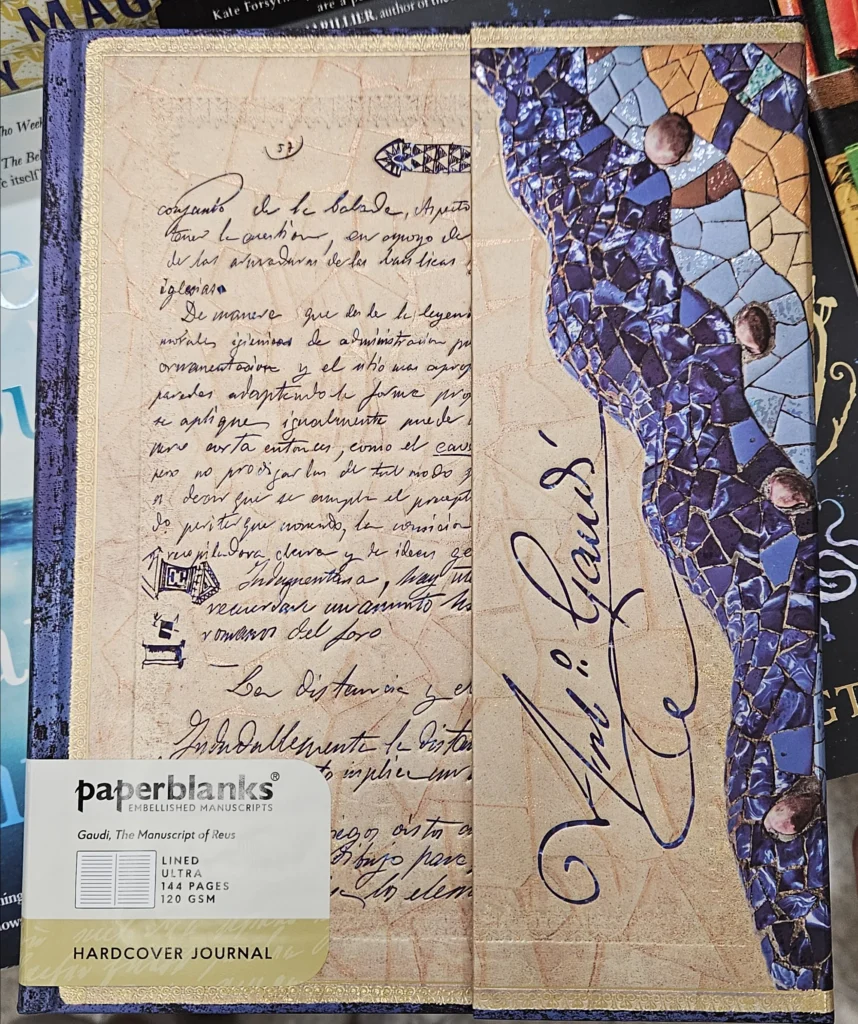 MAG
Kate Forsyth
are a p
PILLIER, author of the
The Bel
itself
57
conjunto de la balada, Aspecto
tener la cuestion, en apoyo de
de las armaduras de las basilicas
iglesias
De manera que desde la leyen
morales igienicas de administracion pu
ornamentacion y el sitio mas aprop
paredes adaptando la forma pro
se aplique igualmente puede
para esta entonces, como el
pero no prodigarlas de tal modo
a decir que se cumpla el precept
la concision
recopiladora, clara y de ideas ge
Indumentaria, hay
recuerdare un asunto
romanos del foro
La distancia y el
Indudablemente la distan
implica un
dibujo para
los elem
Antº Gaudí
paperblanks®
EMBELLISHED MANUSCRIPTS
Gaudi, The Manuscript of Reus
LINED
ULTRA
144 PAGES
120 GSM
HARDCOVER JOURNAL
GT